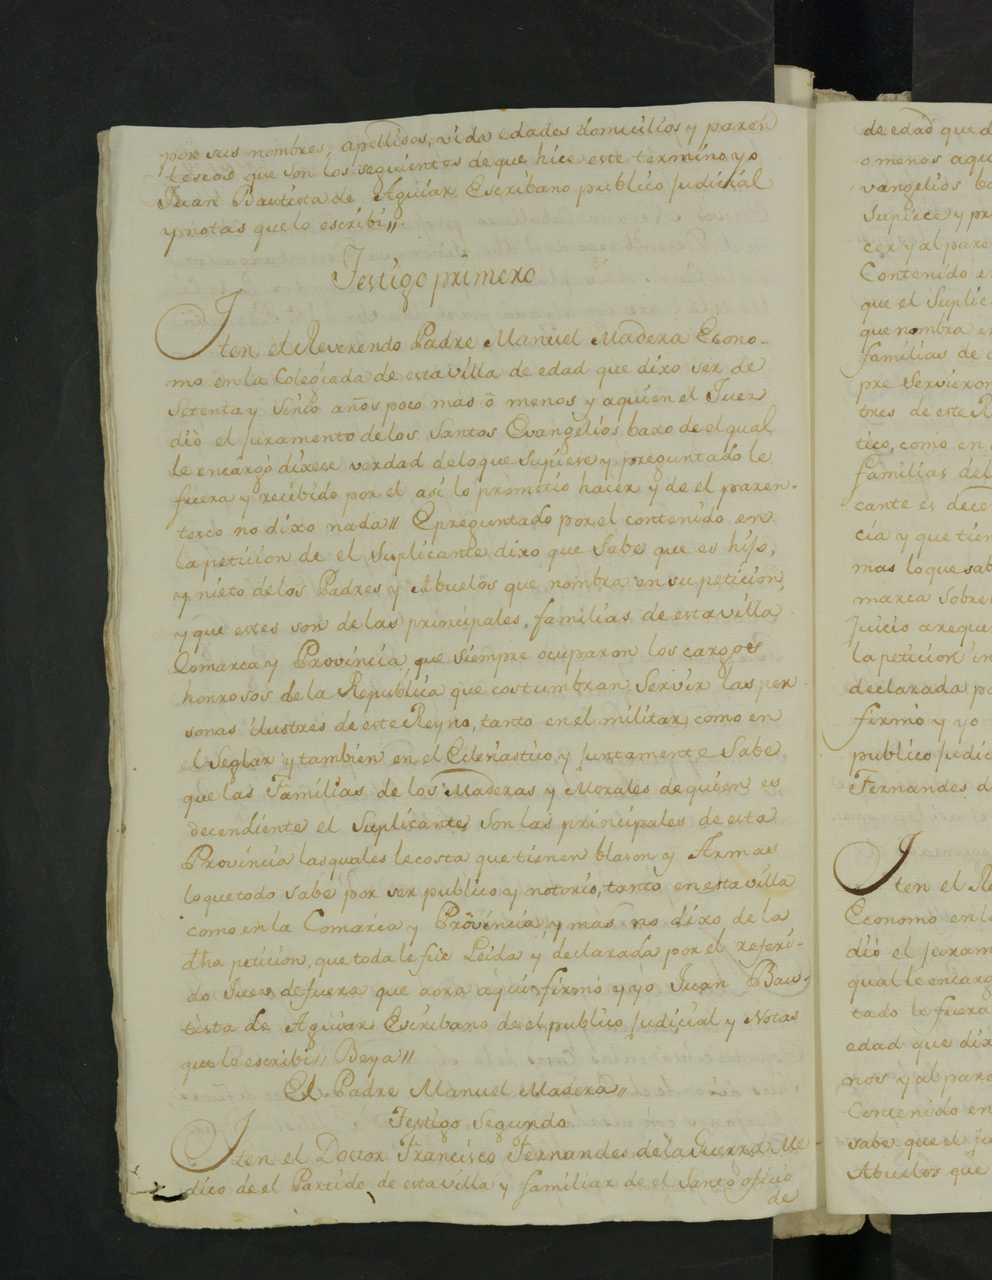 por sus nombres, apellidos, vida edades domicilios y paren
tescos que son los seguientes de que hice este termino yo
Juan Bautista de Aguiar Escribano publico Judicial
y notas que lo escribi //
Testigo primero
Iten el Reverendo Padre Manuel Madera Econo-
mo en la Colegiada de esta villa de edad que dixo ser de
Setenta y Sinco años poco mas ō menos y aquien el Juez
dió el juramento de los Santos Evangelios baxo de el qual
le encargó dixese verdad de lo que Supiese y preguntado le
fuera y recibido por el asi lo prometio hacer y de el paren-
tesco no dixo nada // E preguntado por el contenido en
la peticion de el Suplicante dixo que Sabe que es hijo,
y nieto de los Padres y Abuelos que nombra en su peticion,
y que estes son de las principales familias de esta villa
Comarca y Provincia, que siempre ocuparon los cargoes
honrosos de la Republica que costumbran Servir las per-
sonas ilustres de este Reyno, tanto en el militar, como en
l Seglar y tambien en el Eclesiastico, y juntamente Sabe
que las Familias de los Maderas y Morales de quien es
decendiente el Suplicante Son las principales de esta
Provincia las quales le costa que tienen blason y Armas
lo que todo sabe por ser publico y notorio, tanto en esta villa
como en la Comarca y Provincia y mas no dixo de la
dha peticion, que toda le fue Leida y declarada por el referi-
do Juez de fuera que aora aqui firmó y yo Juan Bau-
tista de Aguiar Escribano de el publico Judicial y Notas
que lo escribi // Beya //
El Padre Manuel Madera //
Testigo Segundo
Iten el Doctor Francisco Fernandes de la Guerra Me
dixo de el Partido de esta villa y familiar de el Santo oficio
de
de edad que d
o menos aqu
vangelios ba
Supiece y pr
cer y al pare
Contenido en
que el Suplic
que nombra en
familias de
pre Servieron
tres de este R
tico, como en
familias del
cante es dece
cia y que tien
mas lo que sab
marca Sobre
Juicio arequ
la peticion in
declarada po
firmó y yo
publico Judic
Fernandes d
Iten el Re
Economo en la
dió el juram
qual le encarg
tado le fuera
edad que dix
nos y al pare
Contenido en
sabe que el Su
Abuelos que